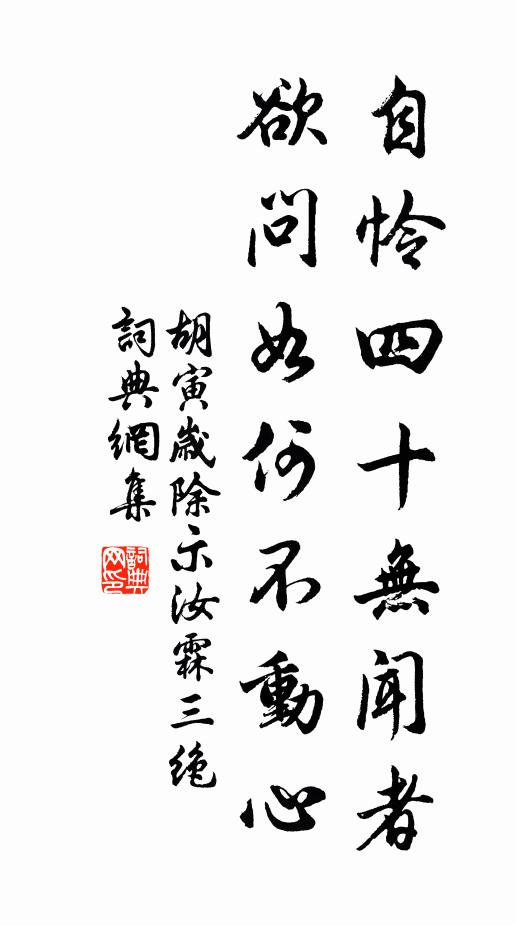 自怜四十無聞者
欲問如何不動心
胡寅歲除示汝霖三絶
詞典網集
詞典网印